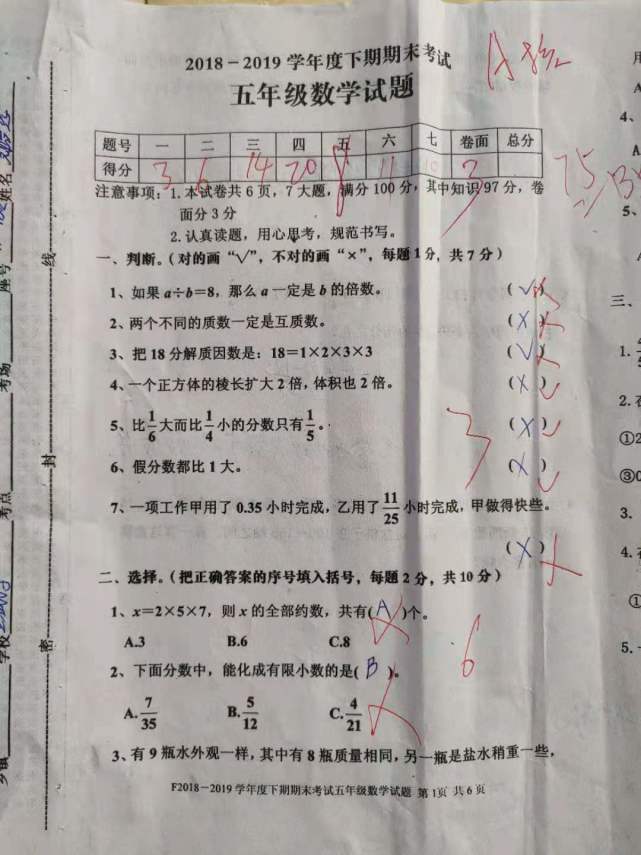 2018－2019 学年度下期期末考试
五年级数学试题
A
题号 一 二 三 四 五 六 七 卷面 总分
得分 3 6 14 20 8 11 3 75
注意事项：1. 本试卷共 6 页，7 大题，满分 100 分，其中知识 97 分，卷
面分 3 分
2. 认真读题，用心思考，规范书写。
一、判断。（对的画“√”，不对的画“×”，每题 1 分，共 7 分）
1、如果 a÷b=8，那么 a 一定是 b 的倍数。 (√)
2、两个不同的质数一定是互质数。 (×)
3、把 18 分解质因数是：18＝1×2×3×3 (√)
4、一个正方体的棱长扩大 2 倍，体积也 2 倍。 (×)
5、比1/6大而比1/4小的分数只有1/5。 (×)
6、假分数都比 1 大。 (×)
3
7、一项工作甲用了 0.35 小时完成，乙用了11/25小时完成，甲做得快些。
(×)
二、选择。（把正确答案的序号填入括号，每题 2 分，共 10 分）
1、x＝2×5×7，则 x 的全部约数，共有( A )个。
A.3 B.6 C.8
6
2、下面分数中，能化成有限小数的是( B )。
A.7/35 B.5/12 C.4/21
3、有 9 瓶水外观一样，其中有 8 瓶质量相同，另一瓶是盐水稍重一些，
F2018－2019 学年度下期期末考试五年级数学试题 第 1页 共 6 页
姓名
座号
考场
考点
学校
乡镇
线
封
密
4、
A.
5、
A
三、
1.
2.
①2
③0
3.
4.
①
5.